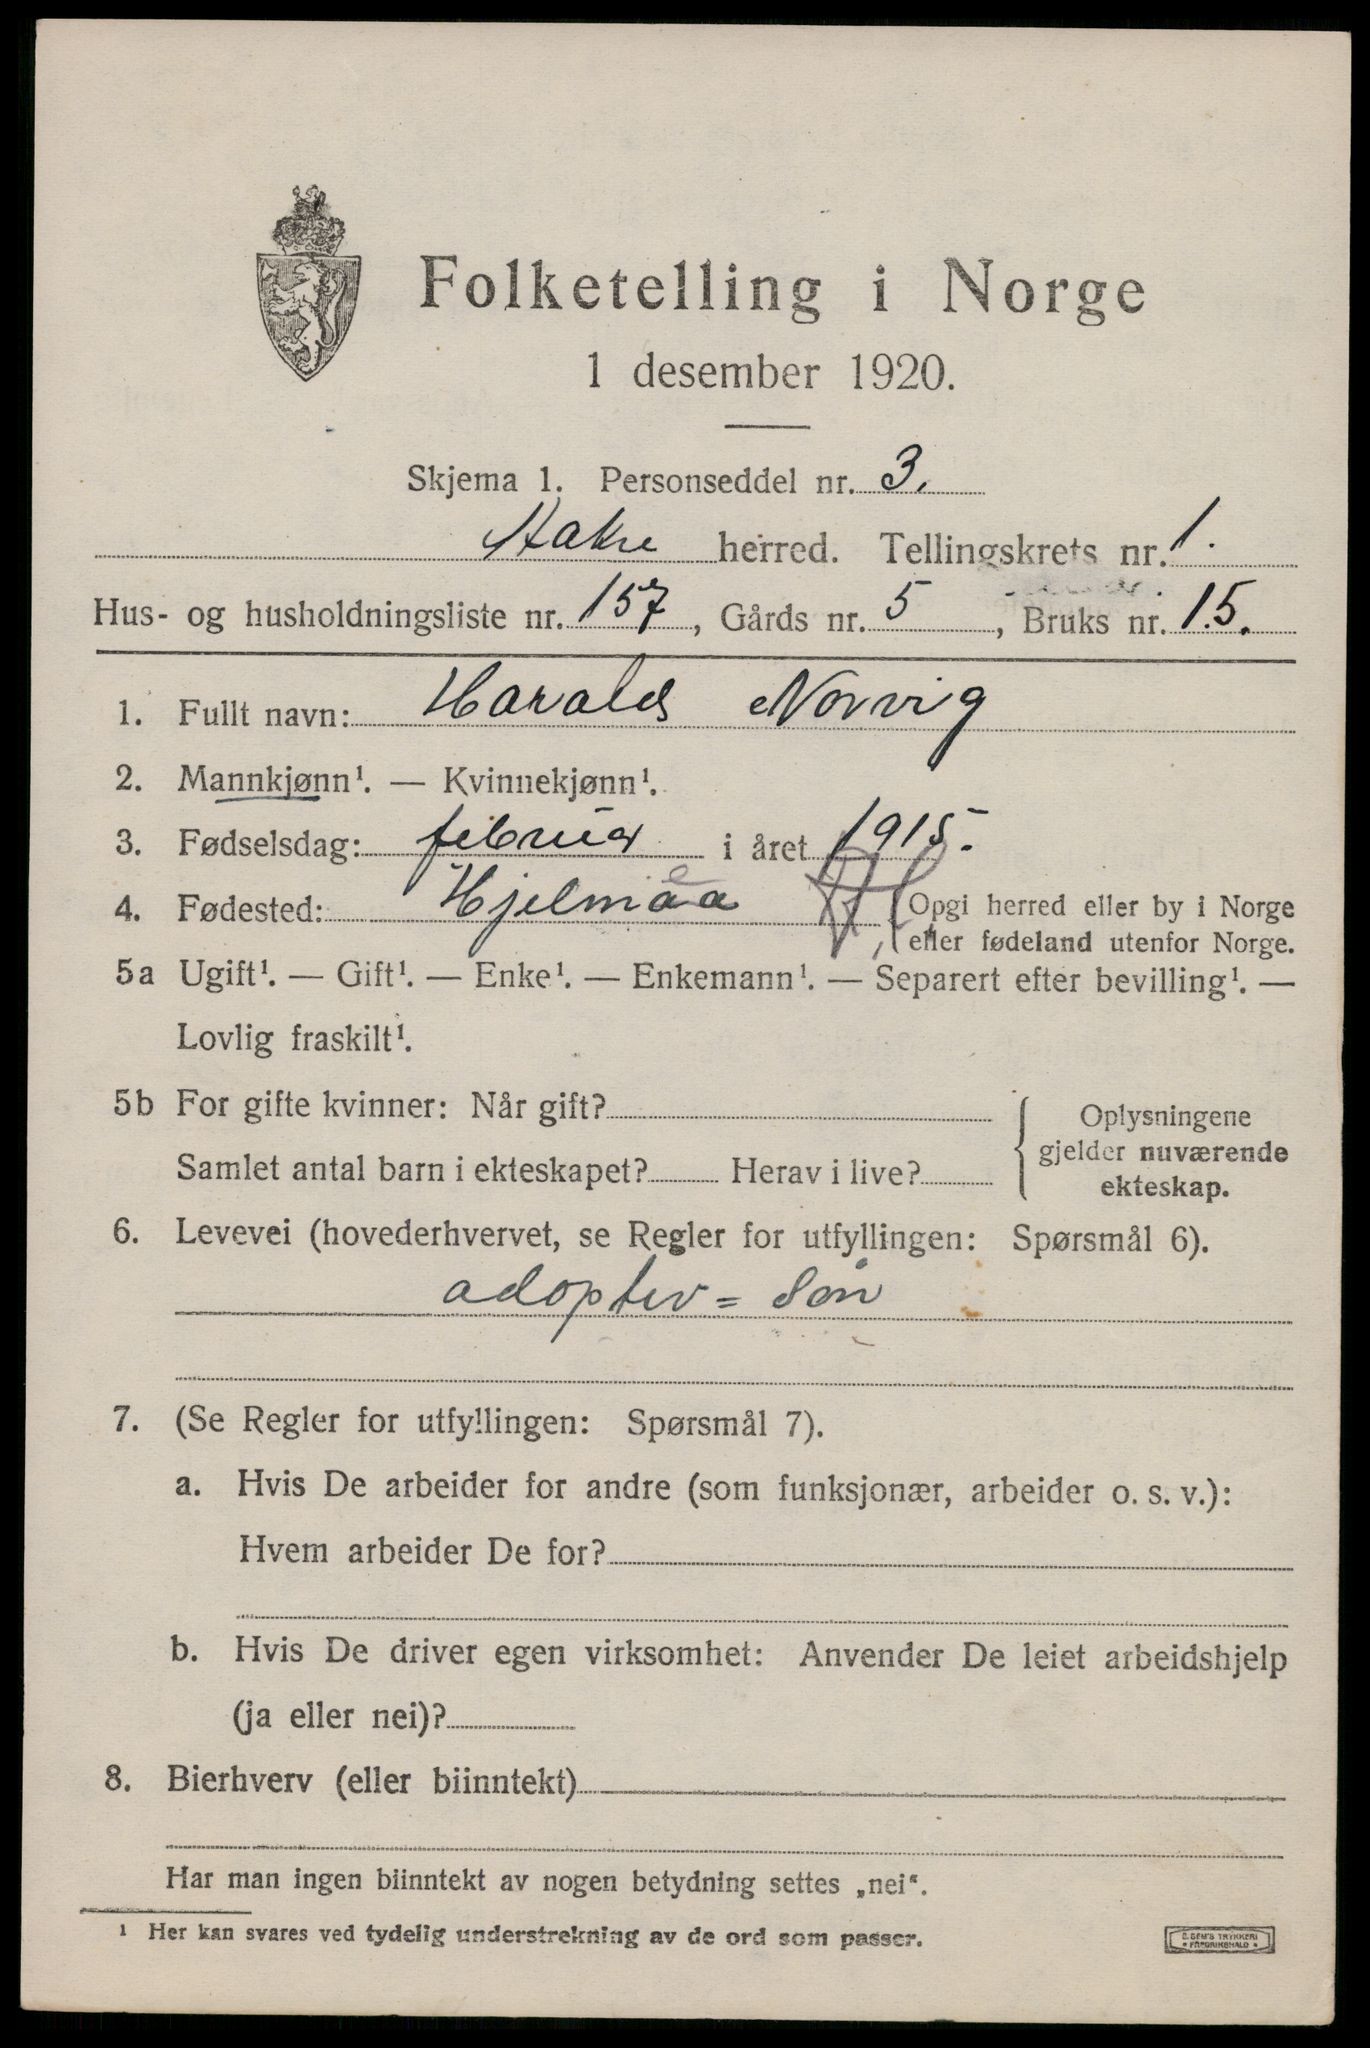 Folketelling i Norge
1 desember 1920.
Skjema 1. Personseddel nr. 3.
herred. Tellingskrets nr. 1.
Hus- og husholdningsliste nr. 157, Gårds nr. 5, Bruks nr. 15.
1. Fullt navn: Harald Norvig
2. Mannkjønn¹. — Kvinnekjønn¹.
3. Fødselsdag: februar i året 1915.
4. Fødested: Hjelmaa
Opgi herred eller by i Norge
eller fødeland utenfor Norge.
5a Ugift¹. — Gift¹. — Enke¹. — Enkemann¹. — Separert efter bevilling¹. —
Lovlig fraskilt¹.
5b For gifte kvinner: Når gift?
Samlet antal barn i ekteskapet? Herav i live?
Oplysningene
gjelder nuværende
ekteskap.
6. Levevei (hovederhvervet, se Regler for utfyllingen: Spørsmål 6).
adoptiv = Søn
7. (Se Regler for utfyllingen: Spørsmål 7).
a. Hvis De arbeider for andre (som funksjonær, arbeider o. s. v.):
Hvem arbeider De for?
b. Hvis De driver egen virksomhet: Anvender De leiet arbeidshjelp
(ja eller nei)?
8. Bierhverv (eller biinntekt)
Har man ingen biinntekt av nogen betydning settes „nei“.
¹ Her kan svares ved tydelig understrekning av de ord som passer.
TRYKKERI
FREDRIKSHALD